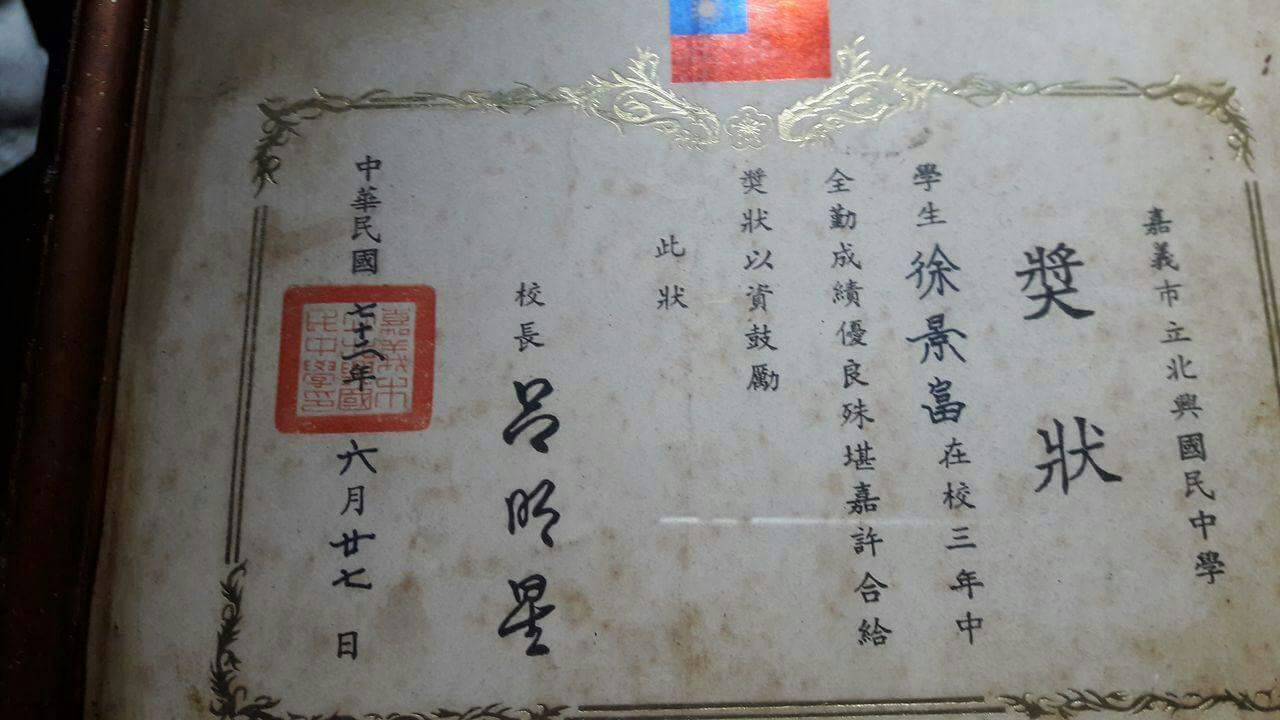 嘉義市立北興國民中學
獎狀
學生徐景富在校三年中
全勤成績優良殊堪嘉許合給
獎狀以資鼓勵
此狀
校長 呂明星
中華民國七十二年六月廿七日
嘉義市立北興國民中學印